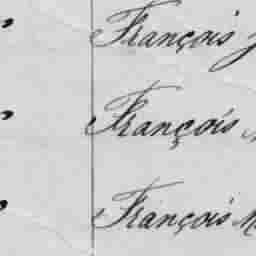 François
François
François